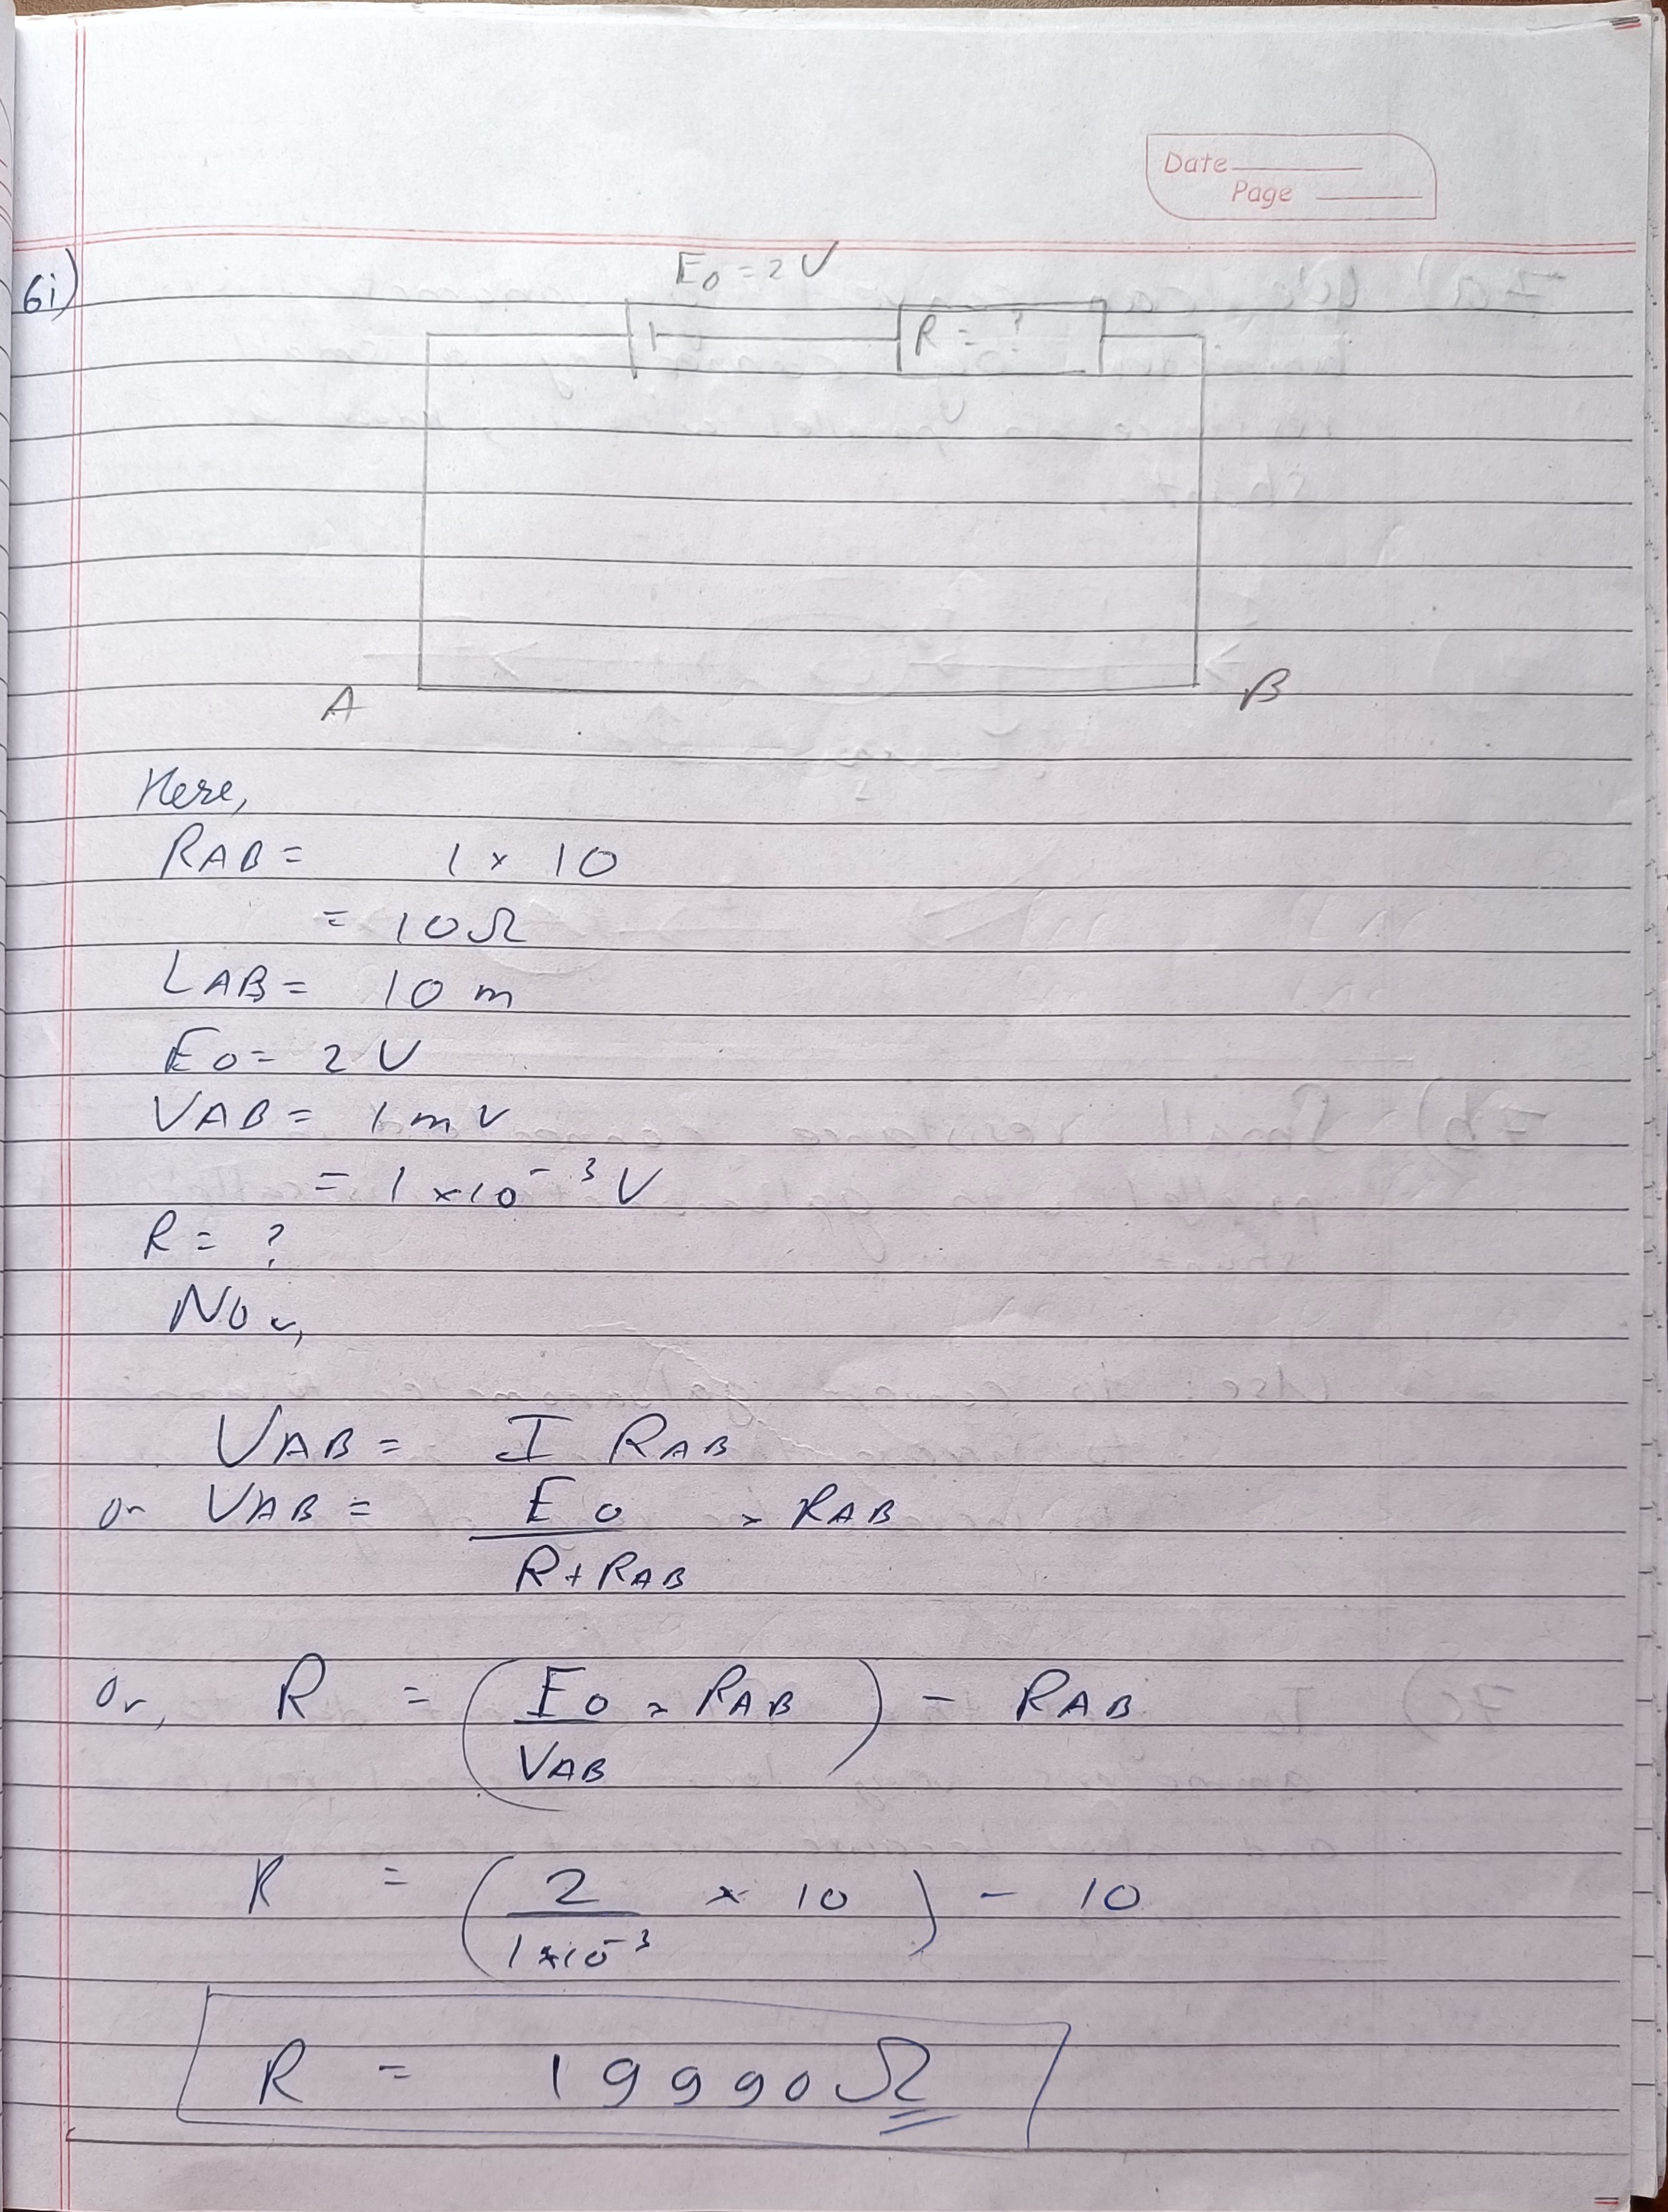 Date
Page
6i)
E0 = 2 V
R = ?
A B
Here,
RAB = 1 × 10
= 10Ω
LAB = 10 m
E0 = 2 V
VAB = 1 mV
= 1 × 10⁻³ V
R = ?
Now,
VAB = I RAB
or VAB = E0 / R + RAB × RAB
Or, R = (E0 / VAB × RAB) - RAB
R = (2 / 1×10⁻³ × 10) - 10
R = 19990 Ω